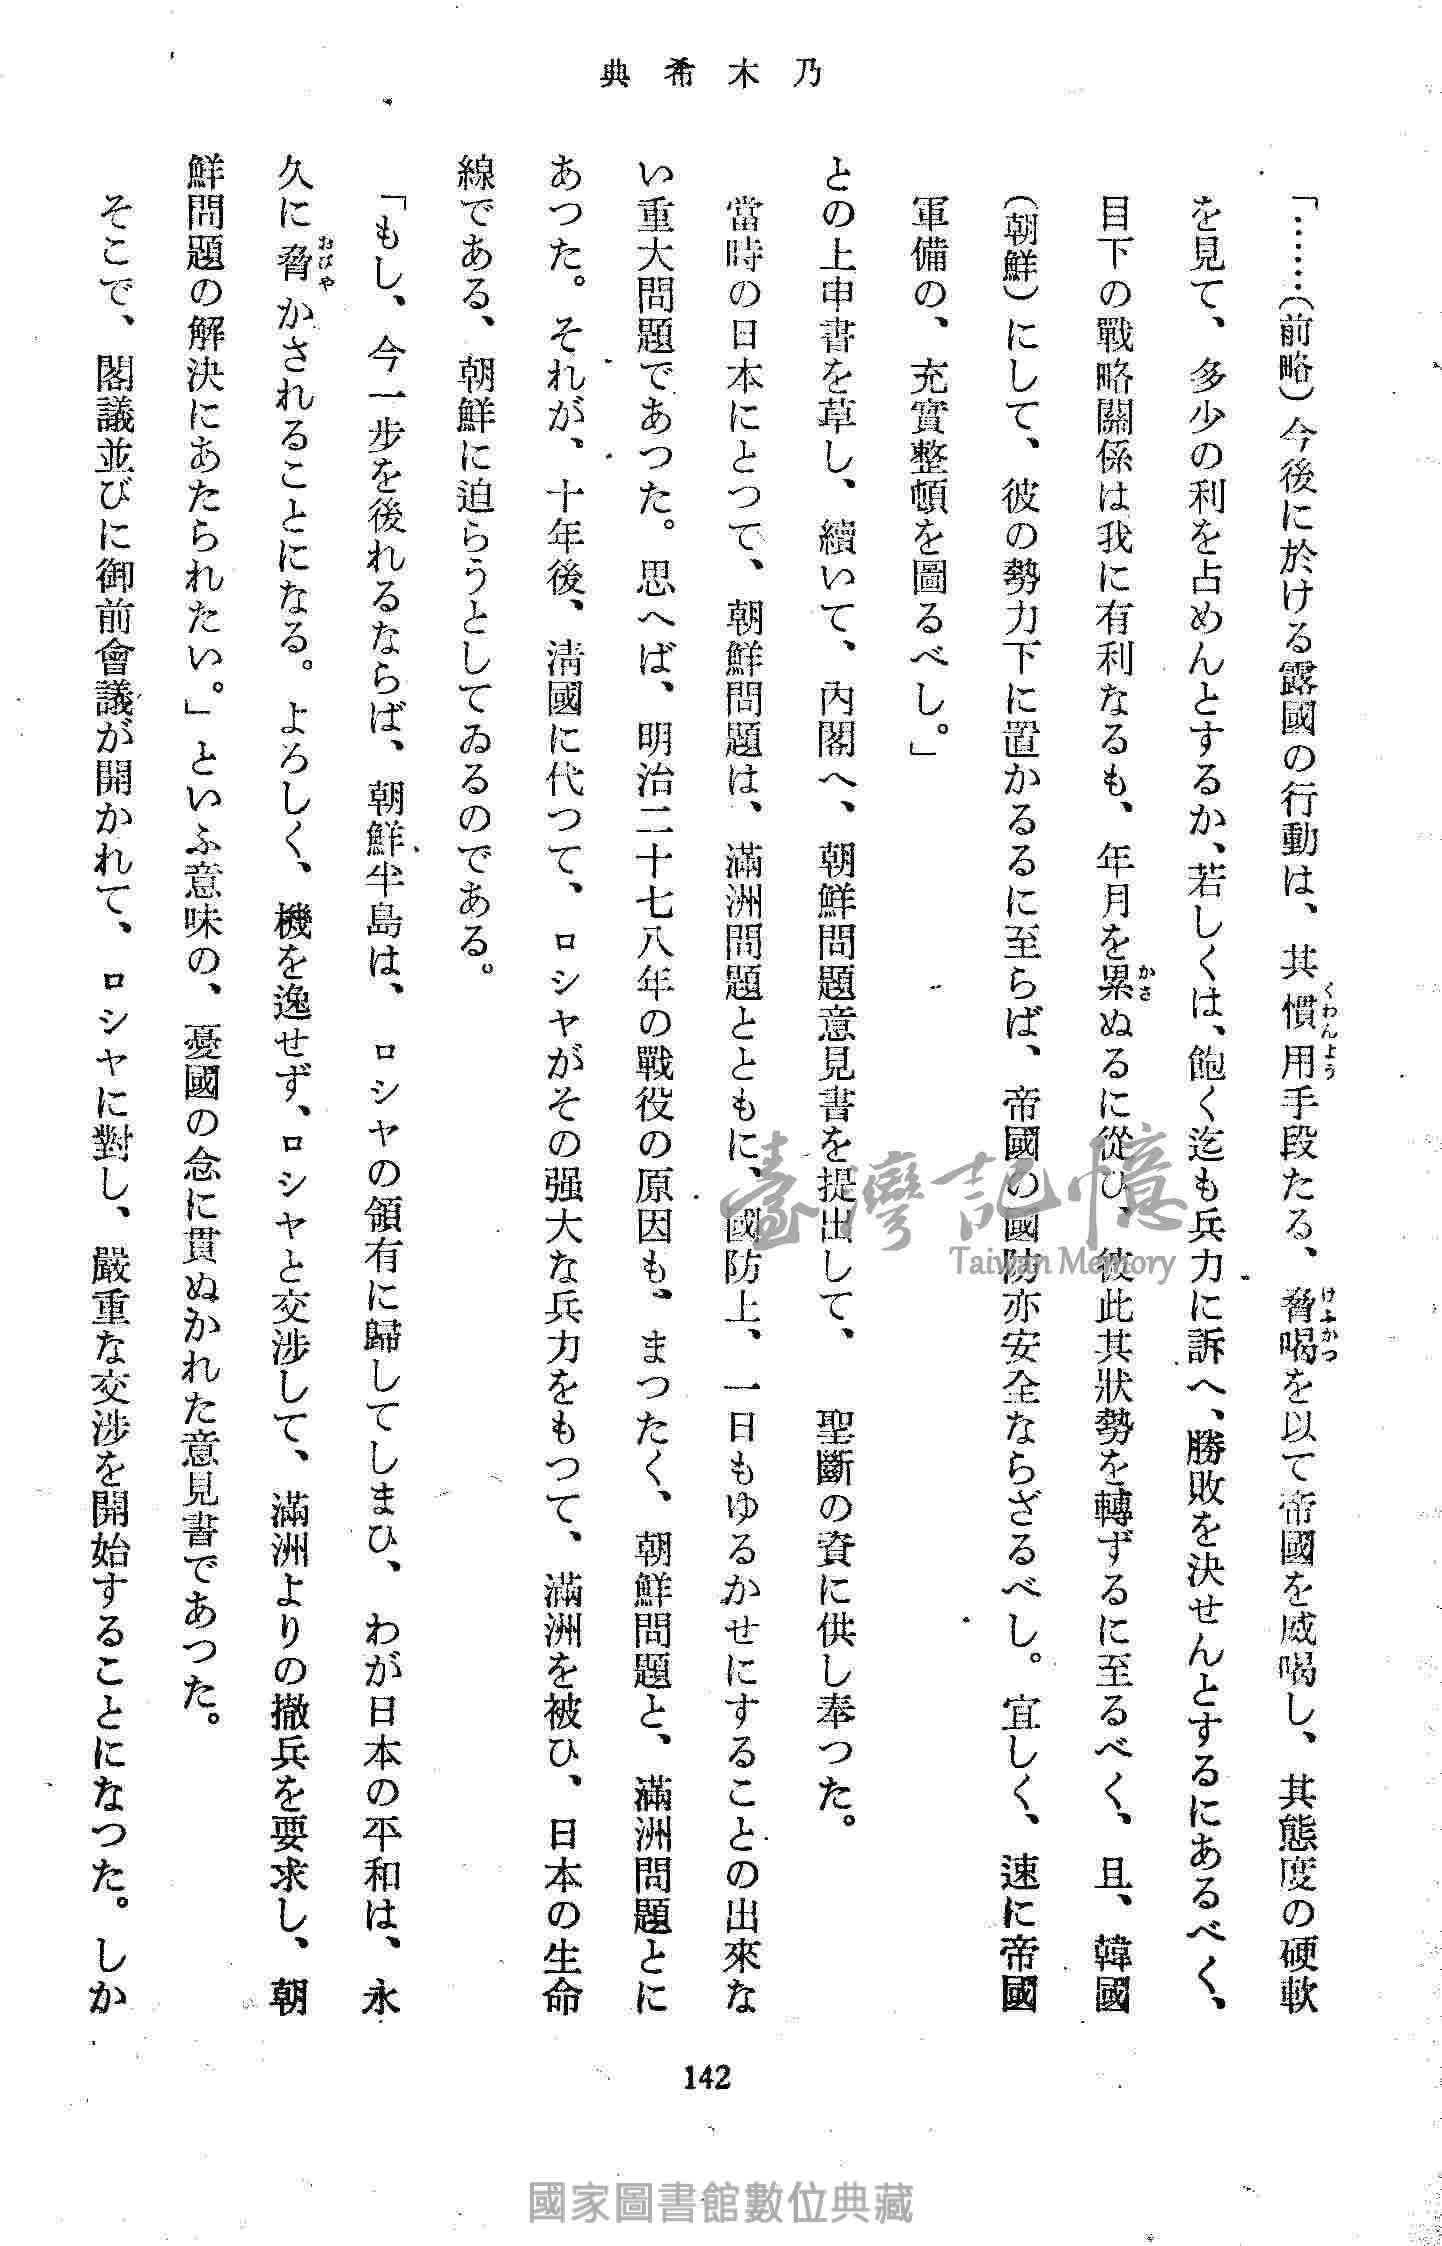 典希木乃
「……(前略)今後に於ける露國の行動は、其慣用手段たる、脅喝を以て帝國を威喝し、其態度の硬軟
くわんよう
けふかつ
を見て、多少の利を占めんとするか、若しくは、飽く迄も兵力に訴へ、勝敗を決せんとするにあるべく、
目下の戰略關係は我に有利なるも、年月を累ぬるに從ひ、彼此其狀勢を轉ずるに至るべく、且、韓國
かさ
(朝鮮)にして、彼の勢力下に置かるるに至らば、帝國の國防亦安全ならざるべし。宜しく、速に帝國
軍備の、充實整頓を圖るべし。」
との上申書を草し、續いて、內閣へ、朝鮮問題意見書を提出して、　聖斷の資に供し奉つた。
當時の日本にとつて、朝鮮問題は、滿洲問題とともに、國防上、一日もゆるかせにすることの出來な
い重大問題であつた。思へば、明治二十七八年の戰役の原因も、まつたく、朝鮮問題と、滿洲問題とに
あつた。それが、十年後、淸國に代つて、ロシヤがその强大な兵力をもつて、滿洲を被ひ、日本の生命
線である、朝鮮に迫らうとしてゐるのである。
「もし、今一步を後れるならば、朝鮮半島は、ロシヤの領有に歸してしまひ、わが日本の平和は、永
久に脅かされることになる。よろしく、機を逸せず、ロシヤと交涉して、滿洲よりの撤兵を要求し、朝
おびや
鮮問題の解決にあたられたい。」といふ意味の、憂國の念に貫ぬかれた意見書であつた。
そこで、閣議並びに御前會議が開かれて、ロシヤに對し、嚴重な交涉を開始することになつた。しか
142
臺灣記憶
Taiwan Memory
國家圖書館數位典藏